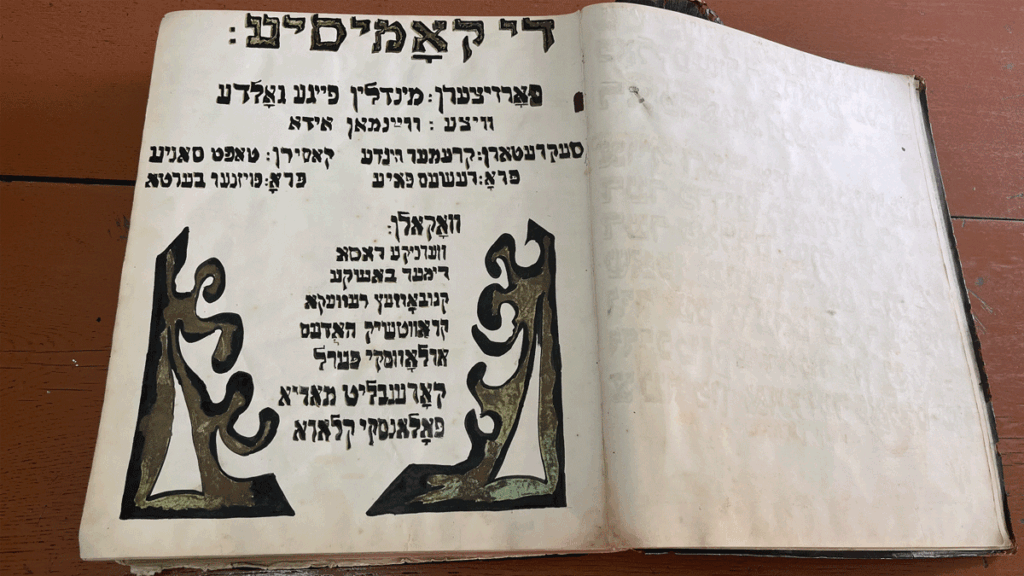 די קאָמיסיע:
פאָרזיצערן: מינדלין פייגע גאָלדע
וויצע: וויינמאן אידא
סעקרעטארן: קרעמער הינדע קאסירן: טאפט סאניע
פרא: רעשעס פאיע פראָ: פויזנער בערטא
וואָקאלן:
ווערניקע ראסא
רימער באשקע
קנובאָוויעץ רעוועקא
קראווטשיק האדעס
אולאָזווסקי פערל
קאָרענבליט מאריא
פאָלאנסקי קלארא